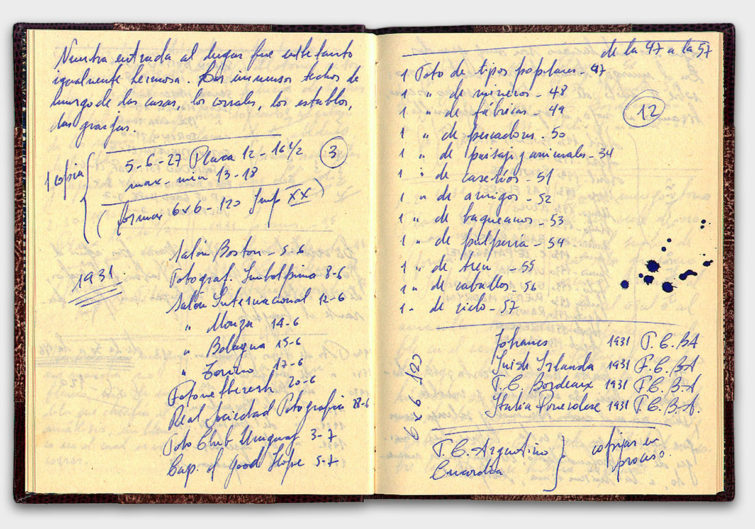 Nuestra entrada al lugar fue
igualmente hermosa. Los inmensos techos de
de las casas, los corrales, los establos,
las granjas.
1 copia
5-6-27 Placa 12-16 1/2
max-min 13-18
3
(formar 6x6-120 Imp XX)
1931
Salón Boston - 5-6
Fotograf. 8-6
Salón Internacional 12-6
" Monza 14-6
" Bologna 15-6
" Torino 17-6
20-6
Real Sociedad Fotografica 28-6
Foto Club Uruguay 3-7
Cap. of Good Hope 5-7
de la 47 a la 57
1 Foto de tipos populares - 47
1 " de mineros - 48
1 " de fábricas - 49
12
1 " de pescadores - 50
1 " de paisaje y animales - 34
1 " de caseríos - 51
1 " de amigos - 52
1 " de baqueanos - 53
1 " de pulpería - 54
1 " de tren - 55
1 " de caballos - 56
1 " de cielo - 57
6x6 120
1931 F.C.BA
1931 F.C.BA
F.C. Bordeaux 1931 F.C.B.A.
Italia 1931 F.C.B.A.
F.C. Argentino
copias en
proceso